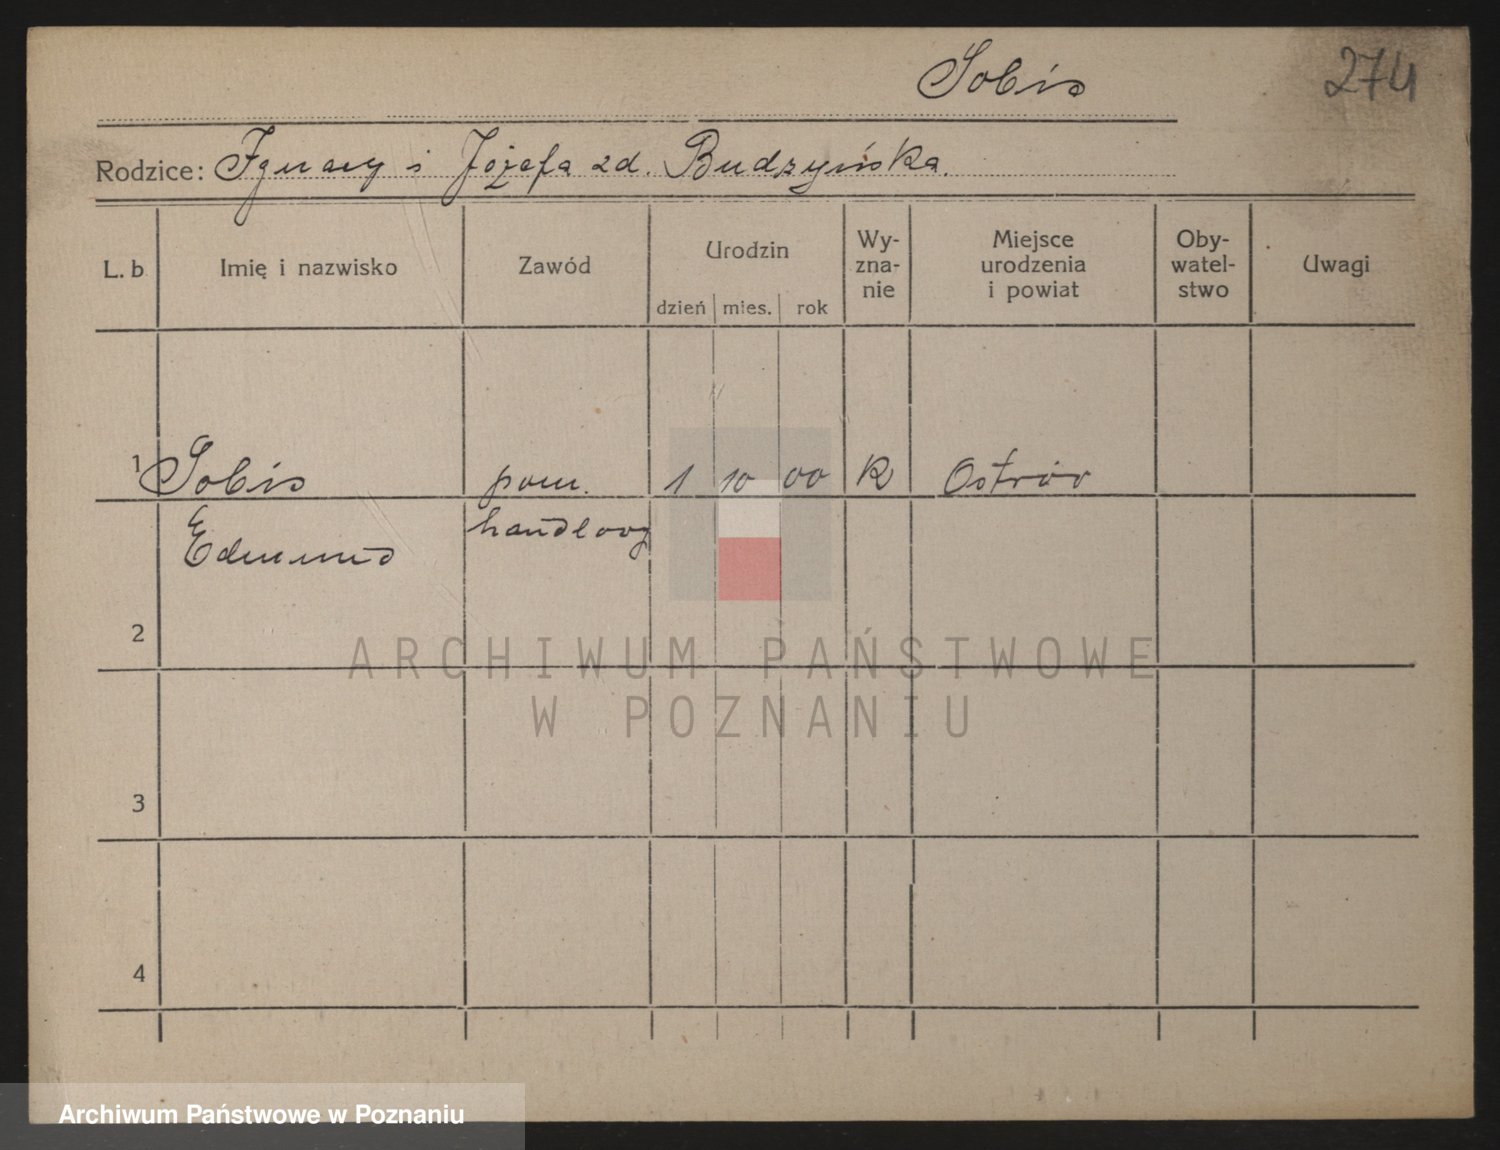 Sobis
274
Rodzice: Ignacy i Józefa zd. Budzyńska.
L. b
Imię i nazwisko
Zawód
Urodzin
dzień mies. rok
Wy-
zna-
nie
Miejsce
urodzenia
i powiat
Oby-
watel-
stwo
Uwagi
1 Sobis pom. 1 10 00 R Ostrów
Edmund handlowy
2
3
4
ARCHIWUM PAŃSTWOWE
W POZNANIU
Archiwum Państwowe w Poznaniu